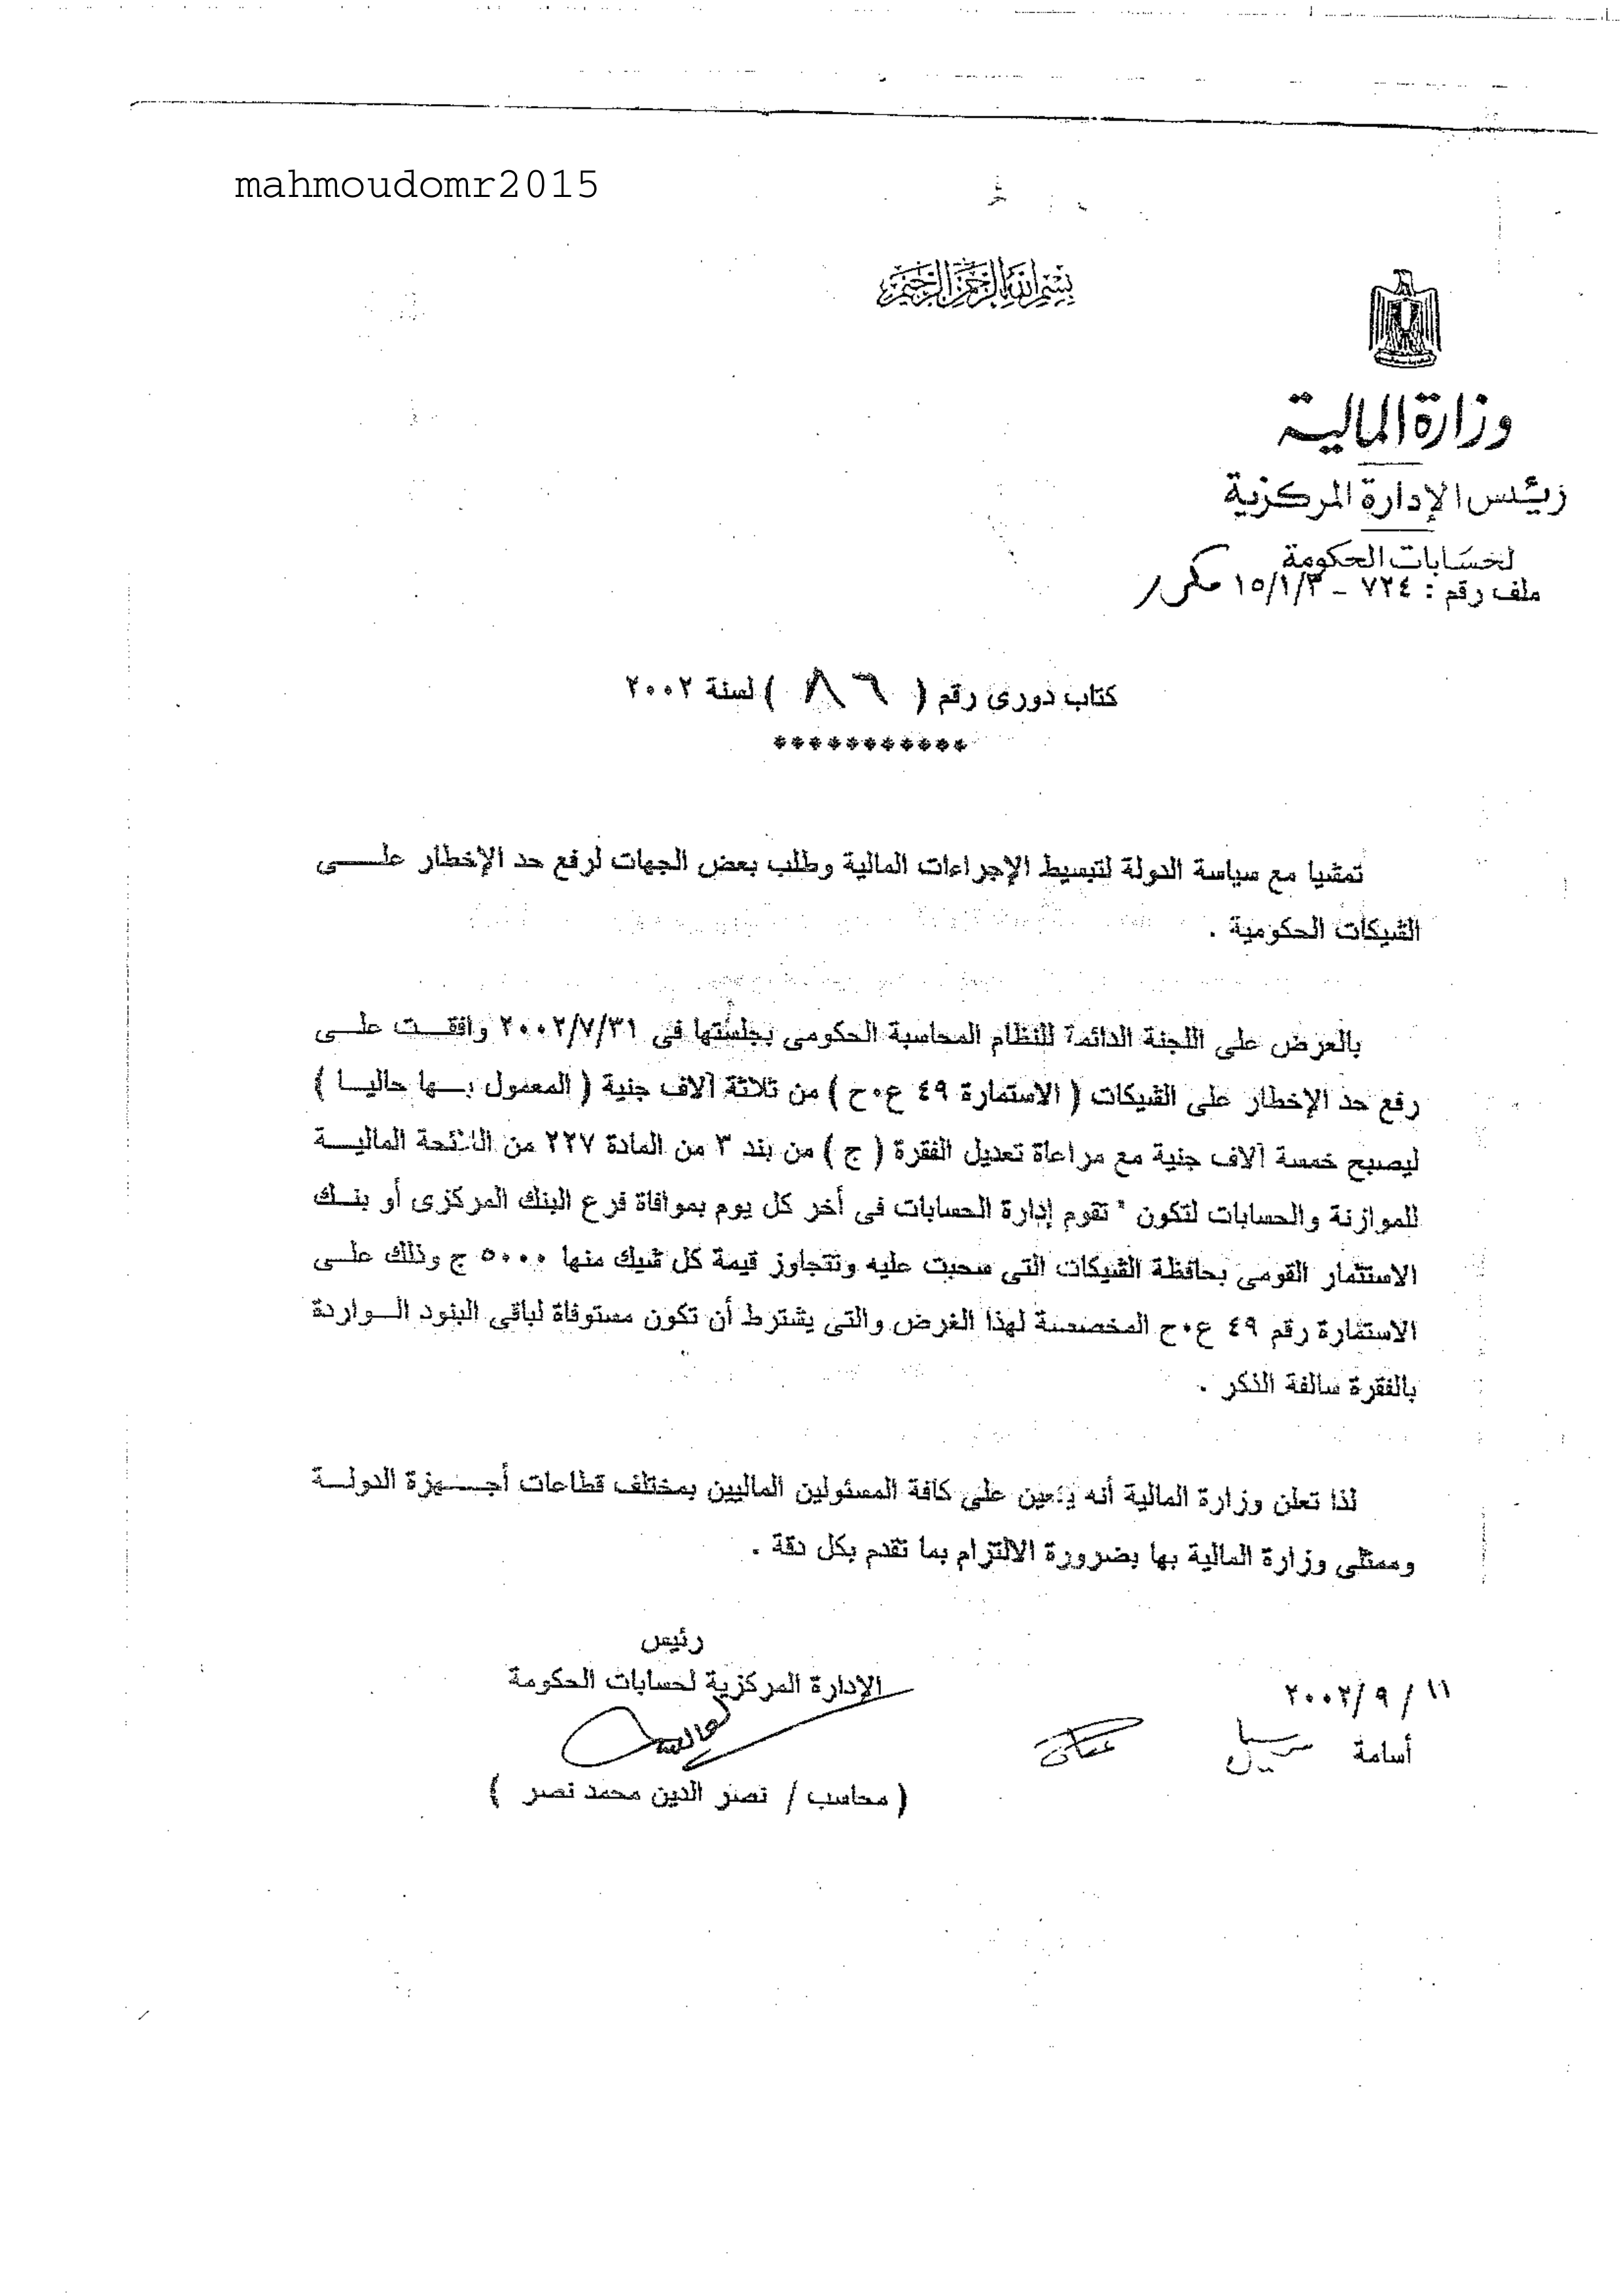 mahmoudomr2015
بسم الله الرحمن الرحيم
وزارة المالية
رئيس الإدارة المركزية
لحسابات الحكومة
ملف رقم : ٧٢٤ - ١٥/١/٣ مكرر/
كتاب دورى رقم ( ٨٦ ) لسنة ٢٠٠٢
***********
تمشيا مع سياسة الدولة لتبسيط الإجراءات المالية وطلب بعض الجهات لرفع حد الإخطار علـــى
الشيكات الحكومية .
بالعرض على اللجنة الدائمة للنظام المحاسبة الحكومى بجلستها فى ٢٠٠٢/٧/٣١ وافقـــت علـــى
رفع حد الإخطار على الشيكات ( الاستمارة ٤٩ ع٠ح ) من ثلاثة آلاف جنية ( المعمول بـــها حاليـــا )
ليصبح خمسة آلاف جنية مع مراعاة تعديل الفقرة ( ج ) من بند ٣ من المادة ٢٢٧ من اللائحة الماليـــة
للموازنة والحسابات لتكون " تقوم إدارة الحسابات فى أخر كل يوم بموافاة فرع البنك المركزى أو بنـــك
الاستثمار القومى بحافظة الشيكات التى سحبت عليه وتتجاوز قيمة كل شيك منها ٥٠٠٠ ج وذلك علـــى
الاستمارة رقم ٤٩ ع٠ح المخصصة لهذا الغرض والتى يشترط أن تكون مستوفاة لباقى البنود الـــواردة
بالفقرة سالفة الذكر .
لذا تعلن وزارة المالية أنه يتعين على كافة المسئولين الماليين بمختلف قطاعات أجـــهزة الدولـــة
وممثلى وزارة المالية بها بضرورة الالتزام بما تقدم بكل دقة .
رئيس
الإدارة المركزية لحسابات الحكومة
١١ / ٩ /٢٠٠٢
أسامة
( محاسب / نصر الدين محمد نصر )